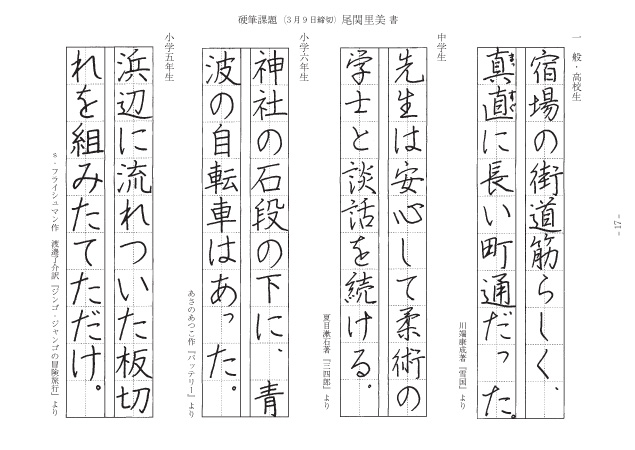 硬筆課題（３月９日締切）尾関里美 書
一般・高校生
宿場の街道筋らしく、
真直に長い町通だった。
まっすぐ
川端康成著『雪国』より
中学生
先生は安心して柔術の
学士と談話を続ける。
夏目漱石著『三四郎』より
小学六年生
神社の石段の下に、青
波の自転車はあった。
あさのあつこ作『バッテリー』より
小学五年生
浜辺に流れついた板切
れを組みたてただけ。
s・フライシュマン作 渡邉了介訳『ジンゴ・ジャンゴの冒険旅行』より
- 17 -